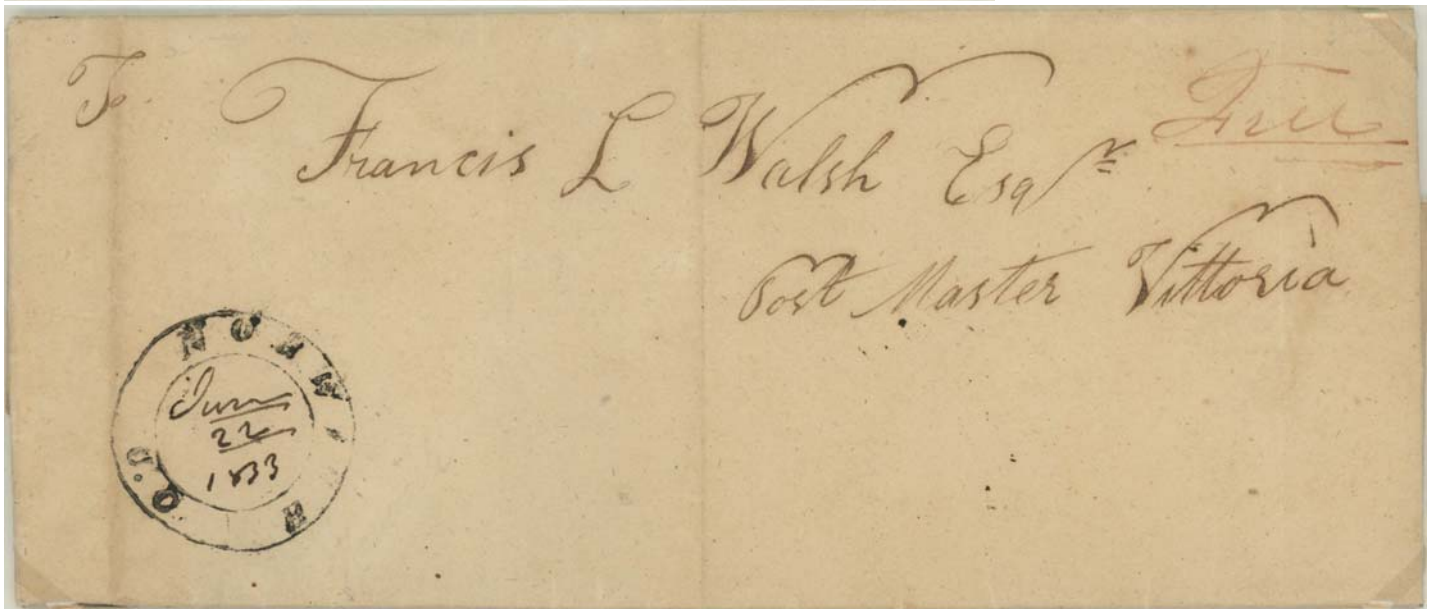 To
Francis L Walsh Esqr
Free
Post Master Vittoria
NORWICH U.C.
June
22
1833